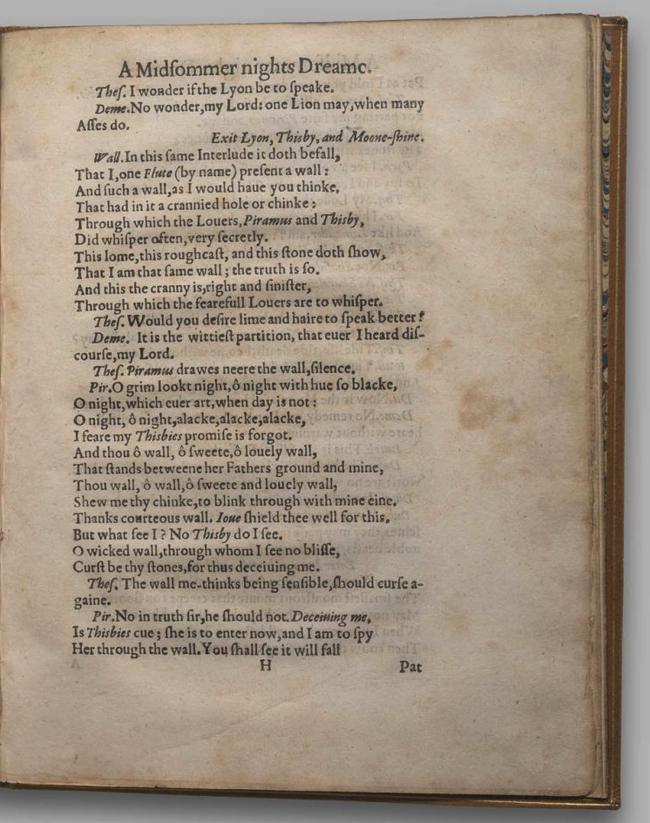 A Midſommer nights Dreame.
Theſ. I wonder if the Lyon be to ſpeake.
Deme. No wonder, my Lord: one Lion may, when many
Aſſes do.
Exit Lyon, Thisby, and Moone-ſhine.
Wall. In this ſame Interlude it doth befall,
That I, one Flute (by name) preſent a wall:
And ſuch a wall, as I would haue you thinke,
That had in it a crannied hole or chinke:
Through which the Louers, Piramus and Thisby,
Did whiſper often, very ſecretly.
This lome, this roughcaſt, and this ſtone doth ſhow,
That I am that ſame wall; the truth is ſo.
And this the cranny is, right and ſiniſter,
Through which the fearefull Louers are to whiſper.
Theſ. Would you deſire lime and haire to ſpeak better?
Deme. It is the wittieſt partition, that euer I heard diſ-
courſe, my Lord.
Theſ. Piramus drawes neere the wall, ſilence.
Pir. O grim lookt night, ô night with hue ſo blacke,
O night, which euer art, when day is not:
O night, ô night, alacke, alacke, alacke,
I feare my Thisbies promiſe is forgot.
And thou ô wall, ô ſweete, ô louely wall,
That ſtands betweene her Fathers ground and mine,
Thou wall, ô wall, ô ſweete and louely wall,
Shew me thy chinke, to blink through with mine eine.
Thanks courteous wall. Ioue ſhield thee well for this.
But what ſee I? No Thisby do I ſee.
O wicked wall, through whom I ſee no bliſſe,
Curſt be thy ſtones, for thus deceiuing me.
Theſ. The wall me-thinks being ſenſible, ſhould curſe a-
gaine.
Pir. No in truth ſir, he ſhould not. Deceiuing me,
Is Thisbies cue; ſhe is to enter now, and I am to ſpy
Her through the wall. You ſhall ſee it will fall
H Pat